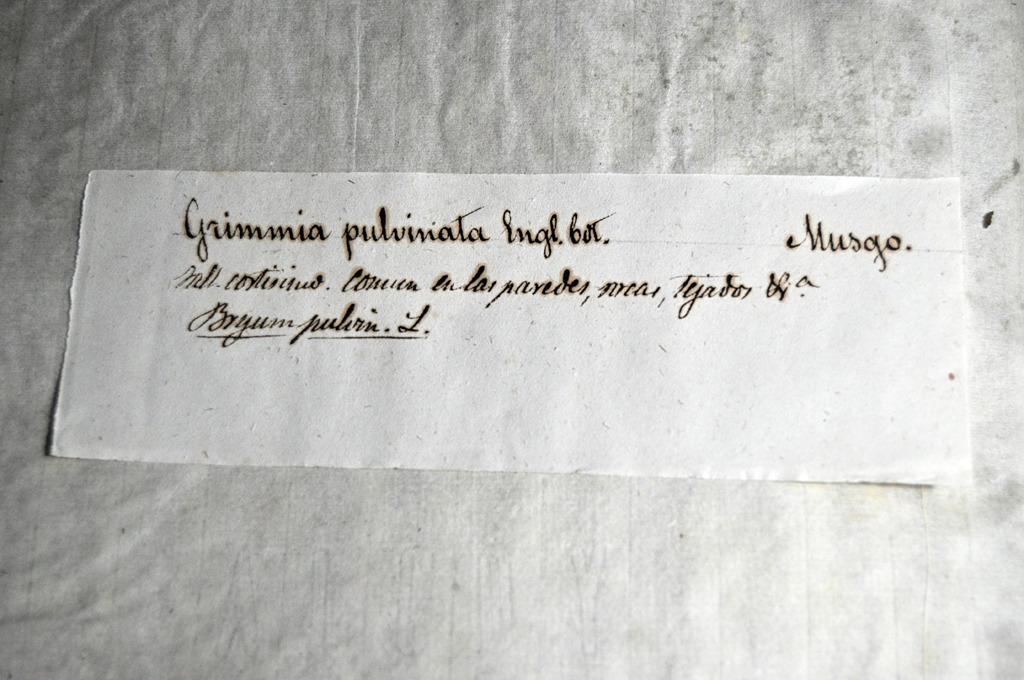 Grimmia pulvinata Engl. bot. Musgo.
Tall. cortisimo. Comun en las paredes, rocas, tejados &ª
Bryum pulvin. L.